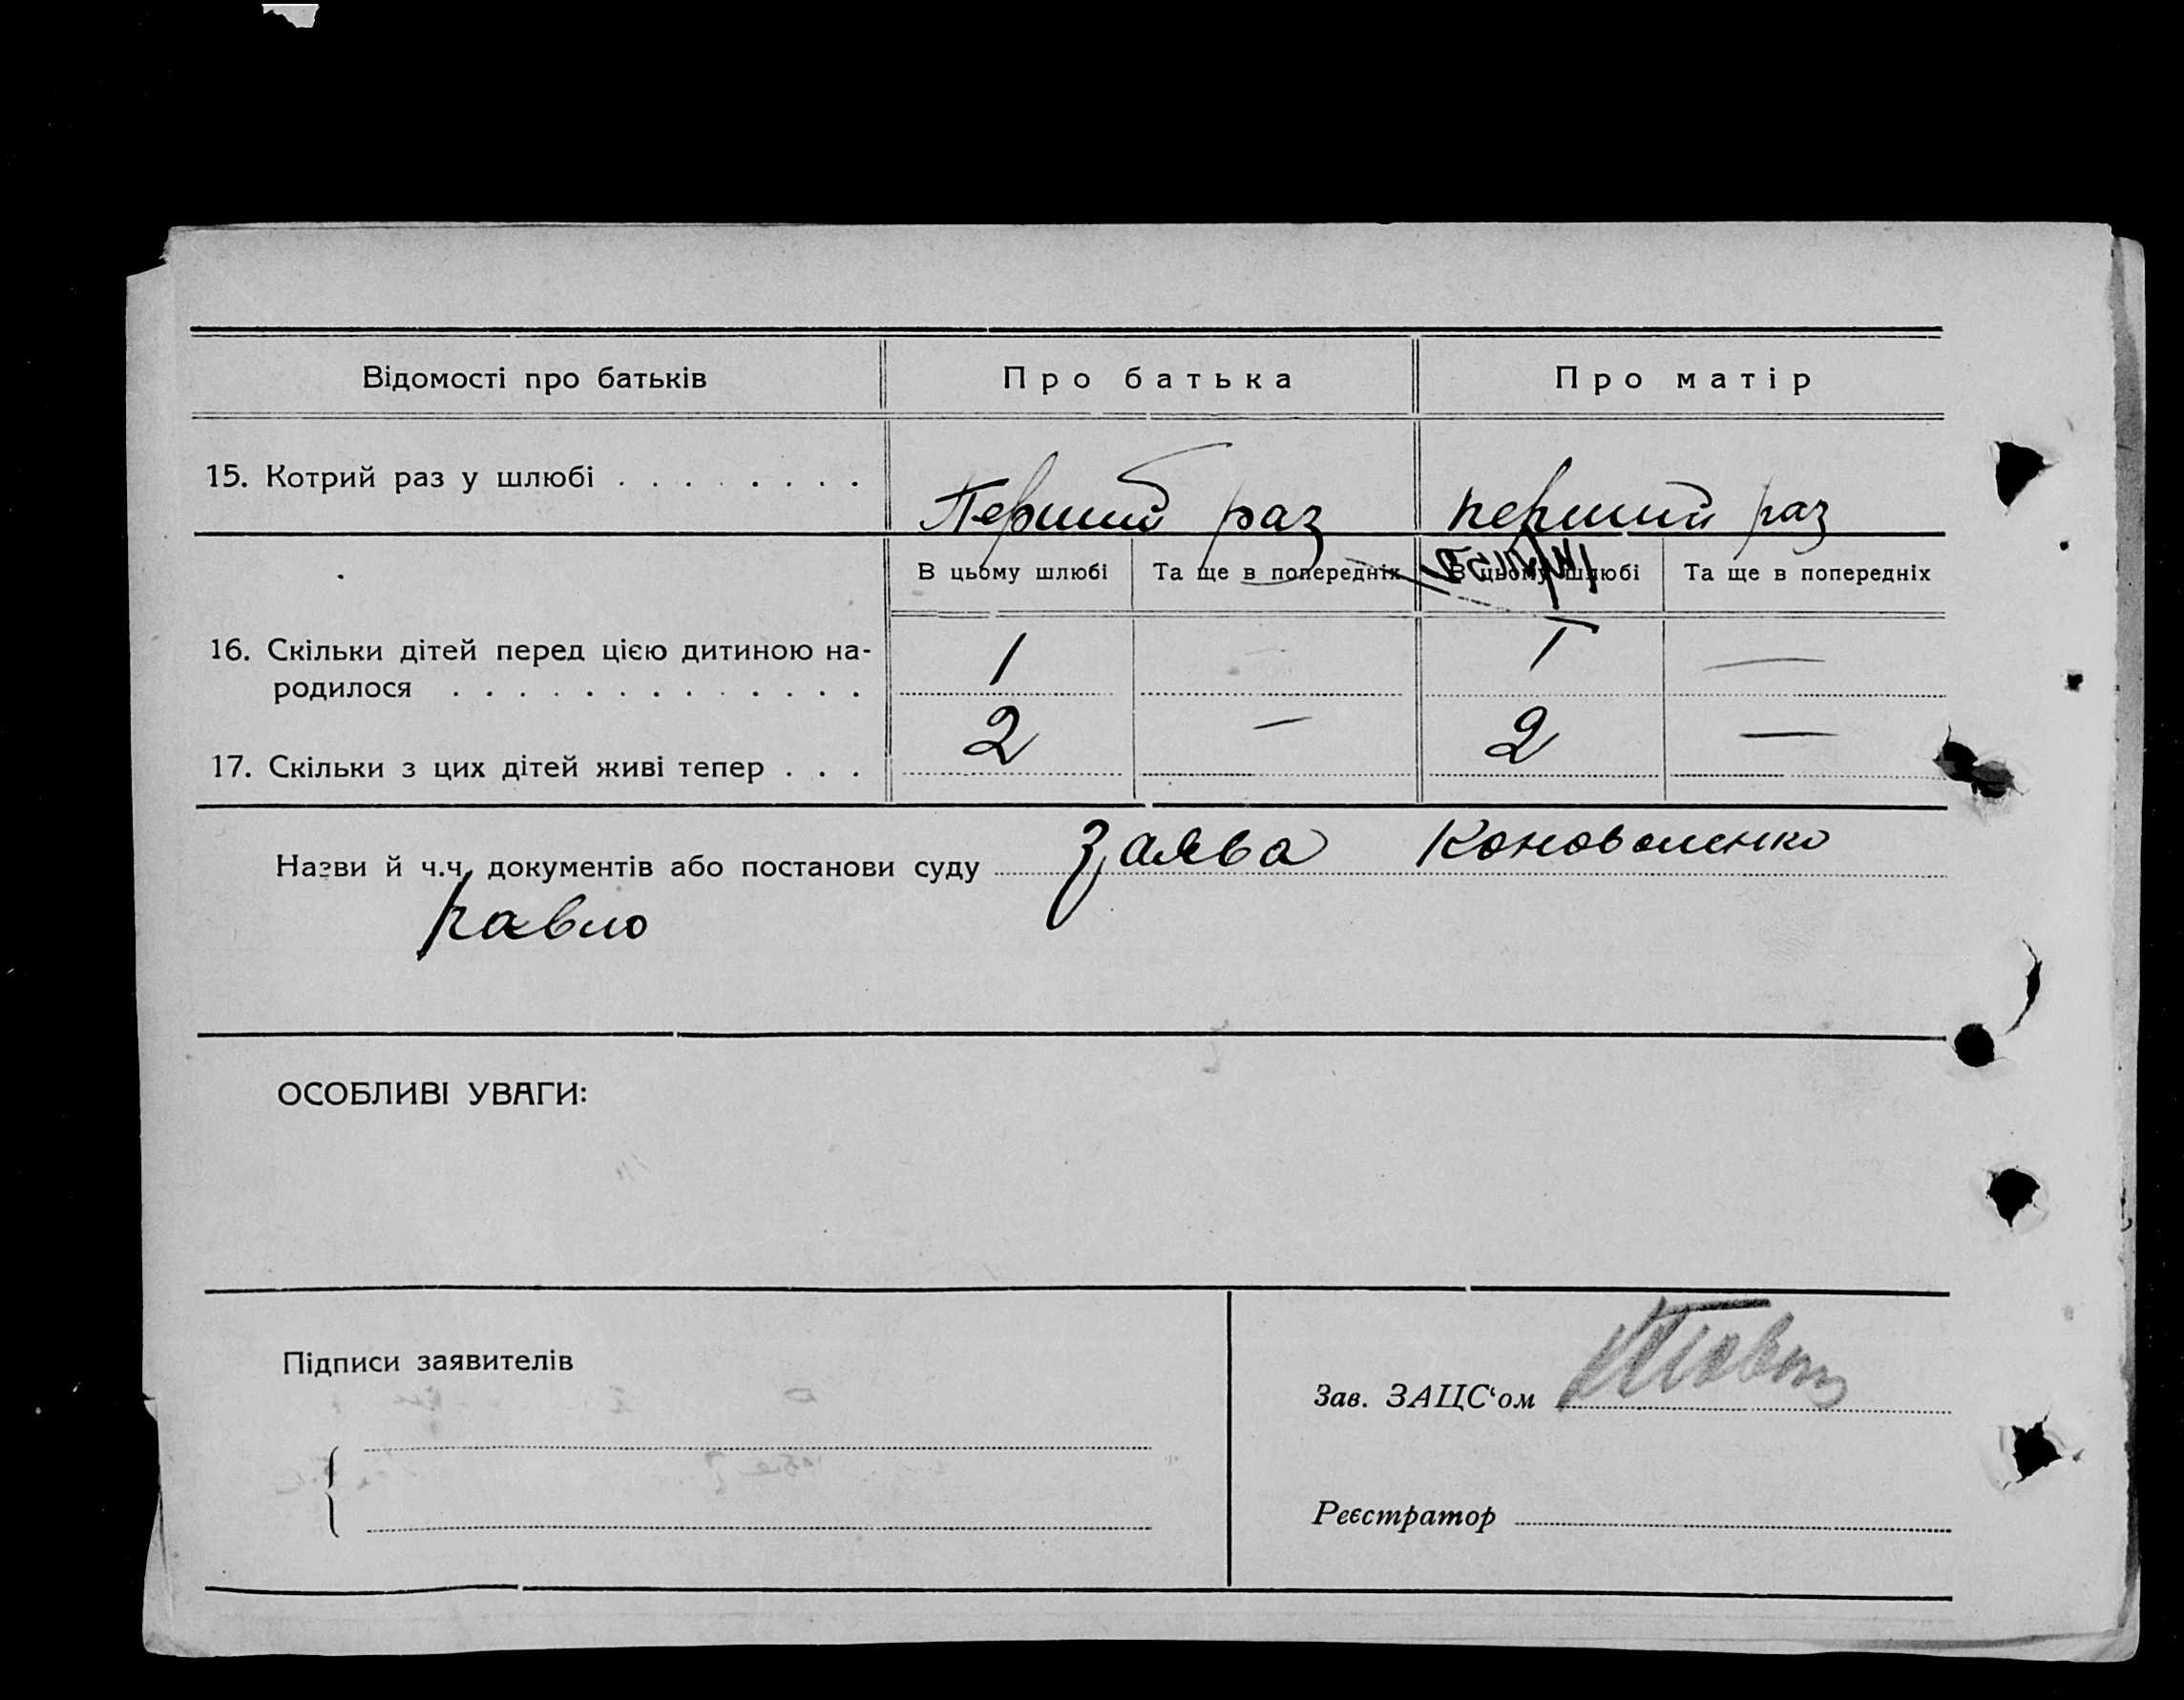 Відомості про батьків Про батька Про матір
15. Котрий раз у шлюбі . . . . . . . . Перший раз перший раз
В цьому шлюбі Та ще в попередніх В цьому шлюбі Та ще в попередніх
16. Скільки дітей перед цією дитиною на-
родилося . . . . . . . . . . . . . 1 1 —
17. Скільки з цих дітей живі тепер . . . 2 — 2 —
Назви й ч.ч. документів або постанови суду Заява Коноваленко
Павло
ОСОБЛИВІ УВАГИ:
Підписи заявителів
Зав. ЗАЦС‘ом
Реєстратор